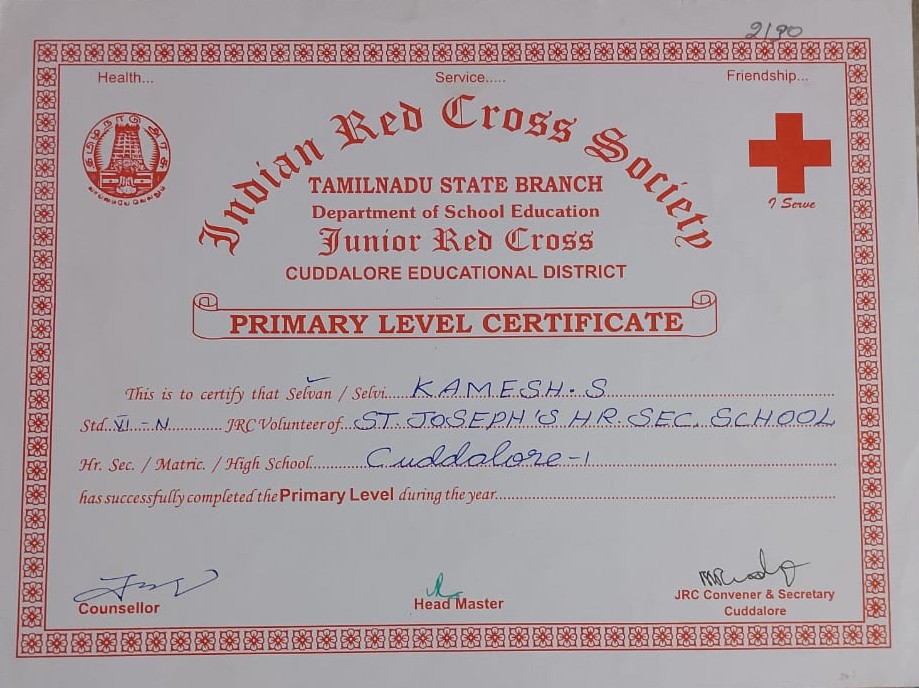 2/90
Health... Service..... Friendship...
தமிழ்நாடு அரசு
வாய்மையே வெல்லும்
Indian Red Cross Society
I Serve
TAMILNADU STATE BRANCH
Department of School Education
Junior Red Cross
CUDDALORE EDUCATIONAL DISTRICT
PRIMARY LEVEL CERTIFICATE
This is to certify that Selvan / Selvi....KAMESH.S
Std..VI - N.......... JRC Volunteer of...ST. JOSEPH'S HR. SEC. SCHOOL
Hr. Sec. / Matric. / High School.......Cuddalore-1
has successfully completed the Primary Level during the year..........
Counsellor Head Master JRC Convener & Secretary
Cuddalore